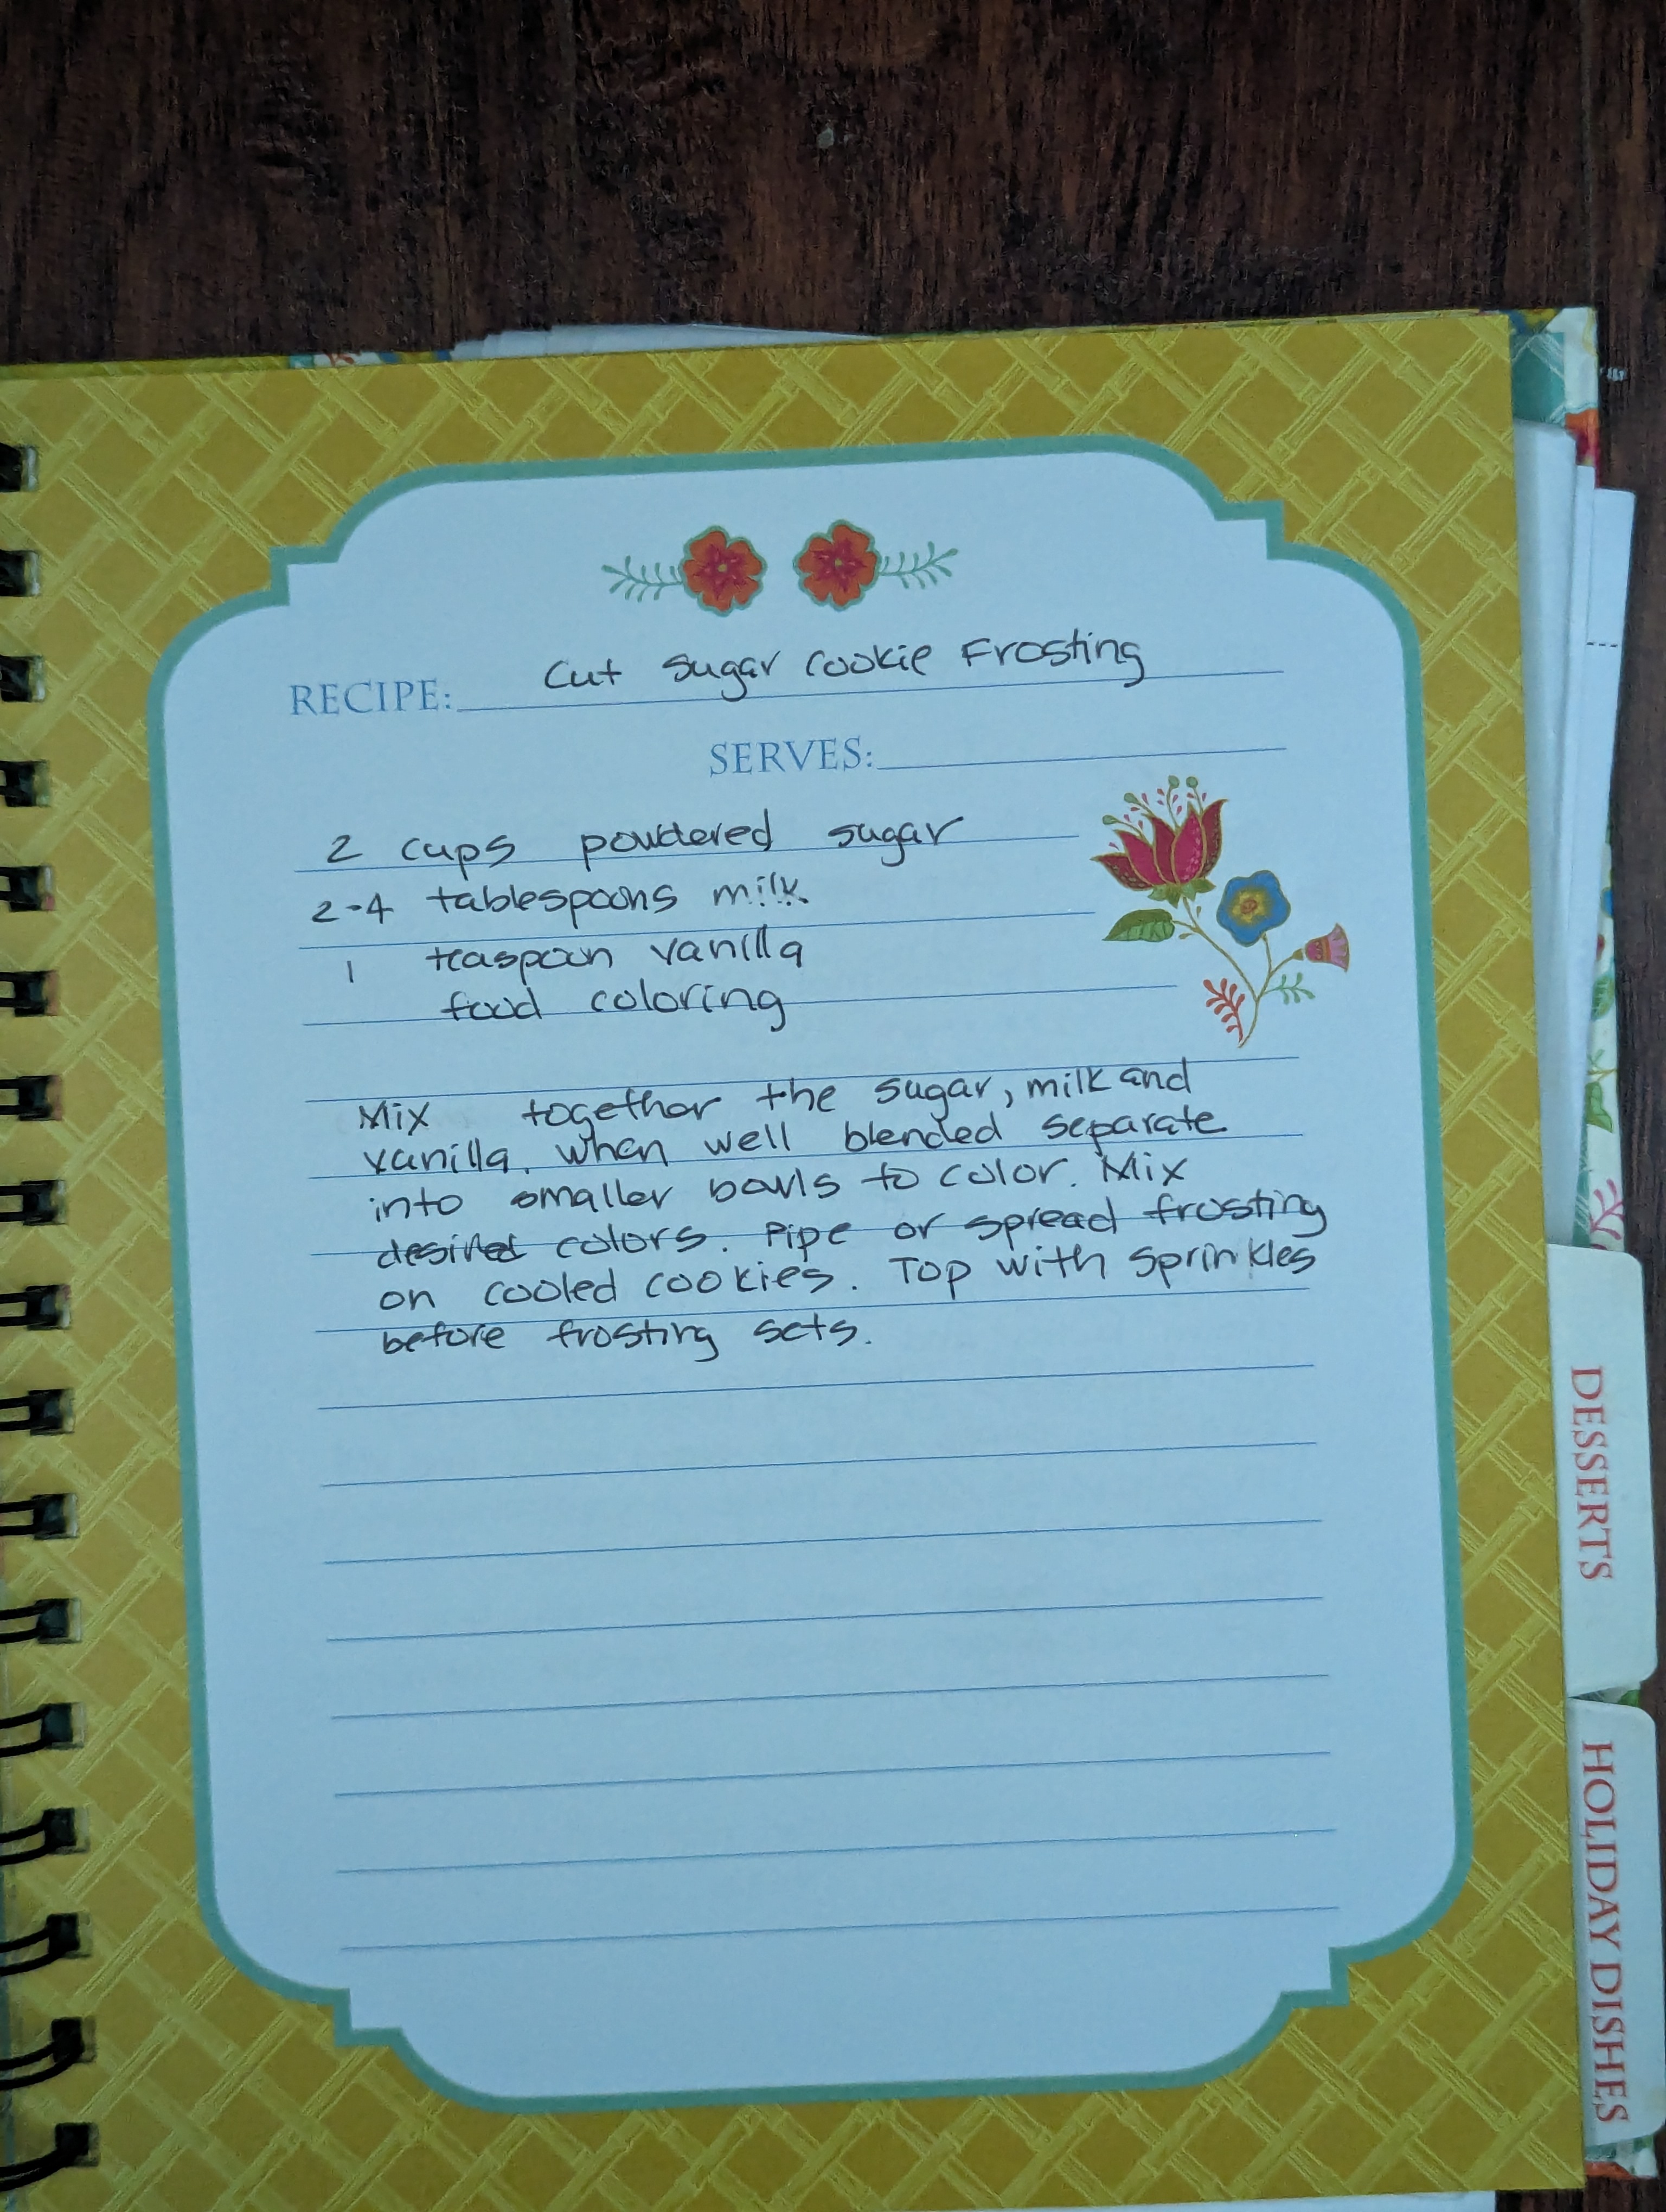 RECIPE: Cut Sugar Cookie Frosting
SERVES:
2 cups powdered sugar
2-4 tablespoons milk
1 teaspoon vanilla
food coloring
Mix together the sugar, milk and
vanilla. When well blended separate
into smaller bowls to color. Mix
desired colors. Pipe or spread frosting
on cooled cookies. Top with sprinkles
before frosting sets.
DESSERTS
HOLIDAY DISHES